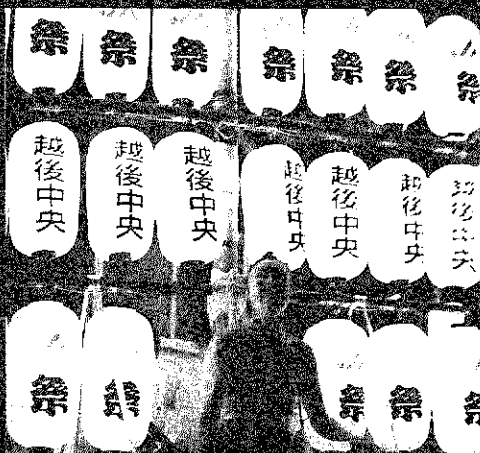 祭
祭
祭
祭
祭
祭
祭
越後中央
越後中央
越後中央
越後中央
越後中央
越後中央
越後中央
祭
祭
祭
祭
祭